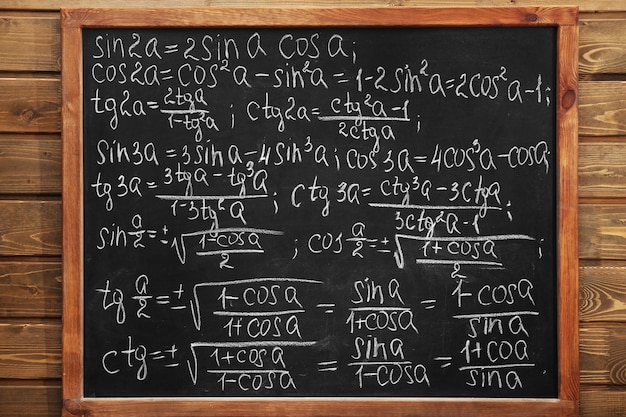 sin2a=2sina cosa;
cos2a=cos²a-sin²a=1-2sin²a=2cos²a-1;
tg2a=2tga/1-tg²a; ctg2a=ctg²a-1/2ctga;
sin3a=3sina-4sin³a; cos3a=4cos³a-cosa;
tg3a=3tga-tg³a/1-3tg²a; ctg3a=ctg³a-3ctga/3ctg²a-1;
sin a/2=±√1-cosa/2; cos a/2=±√1+cosa/2;
tg a/2=±√1-cosa/1+cosa=sina/1+cosa=1-cosa/sina
ctg=±√1+cosa/1-cosa=sina/1-cosa=1+coa/sina